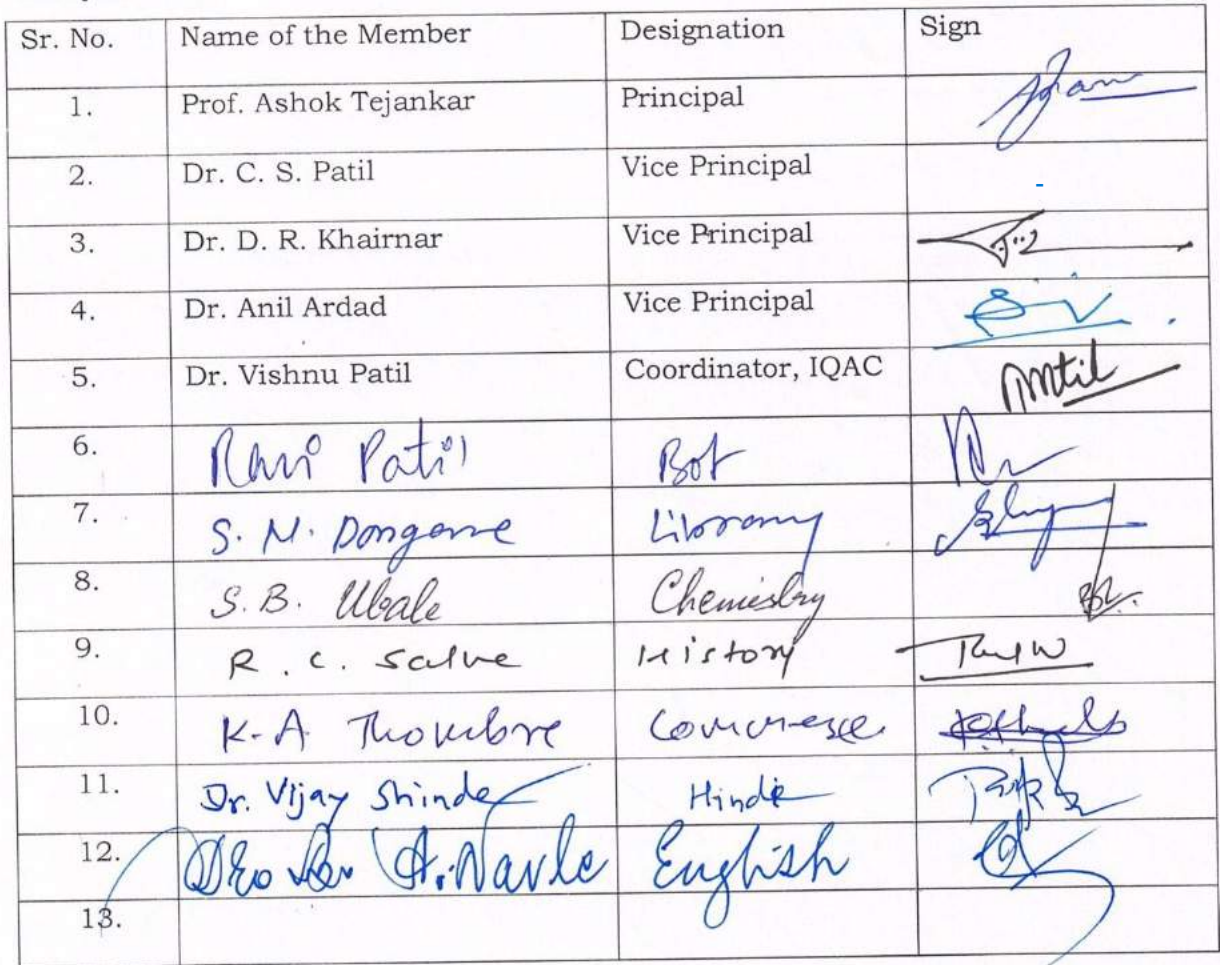 Sr. No. Name of the Member Designation Sign
1. Prof. Ashok Tejankar Principal
2. Dr. C. S. Patil Vice Principal -
3. Dr. D. R. Khairnar Vice Principal
4. Dr. Anil Ardad Vice Principal
5. Dr. Vishnu Patil Coordinator, IQAC
6. Ravi Patil Bot
7. S. N. Dongarre Library
8. S. B. Ubale Chemistry
9. R. C. Salve History
10. K. A Thombre Commerce
11. Dr. Vijay Shinde Hindi
12. A. Navle English
13.